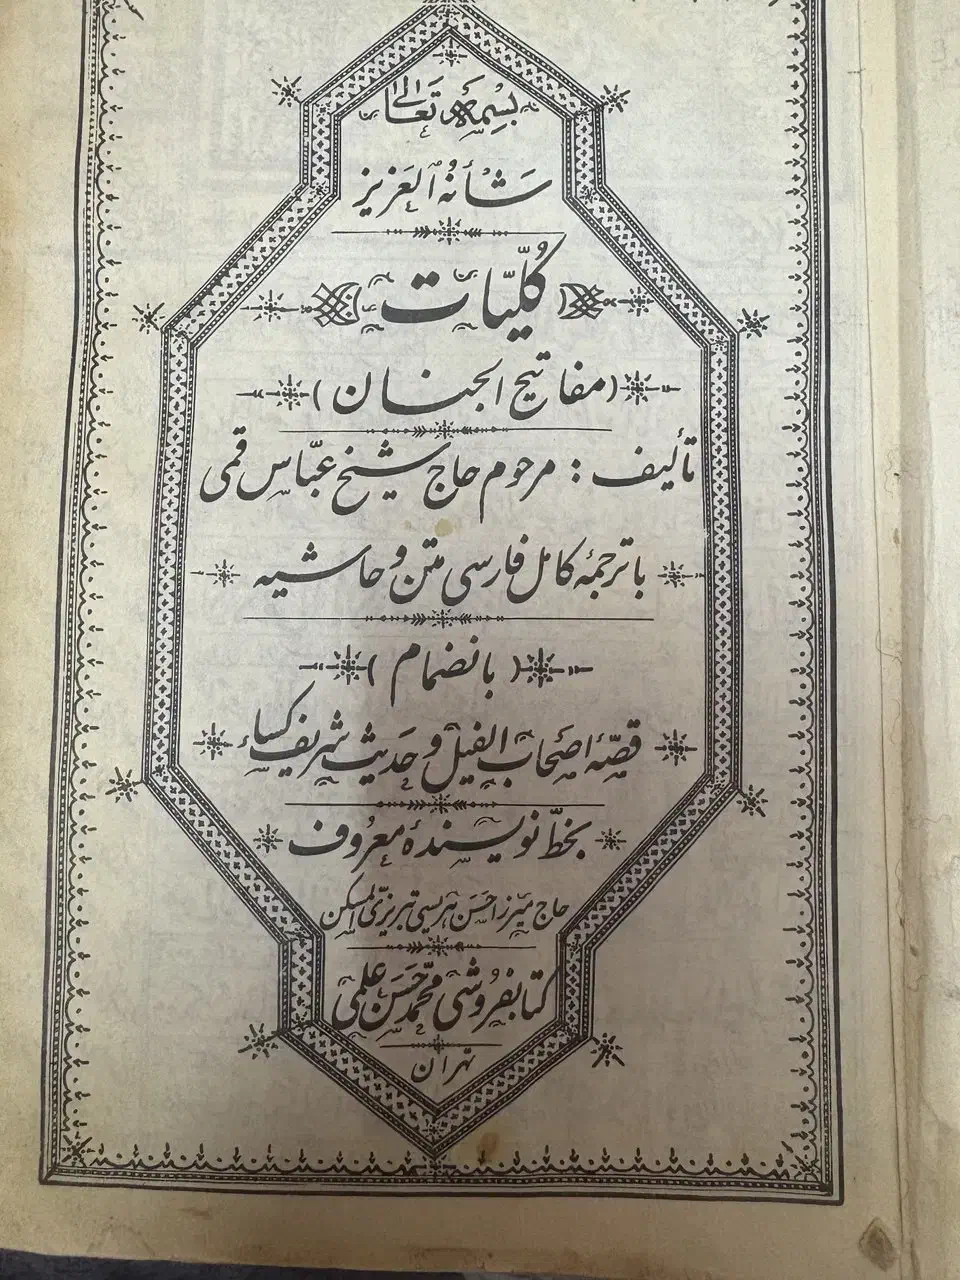 بسمه تعالی
شأنه العزیز
کلیّات
(مفاتیح الجنان)
تألیف : مرحوم حاج شیخ عبّاس قمی
با ترجمهٔ کامل فارسی متن و حاشیه
(بانضمام)
قصّهٔ اصحاب الفیل و حدیث شریف کساء
بخطّ نویسندهٔ معروف
حاج میرزا حسن هریسی تبریزیّ المسکن
کتابفروشی محمّد حسن علمی
تهران